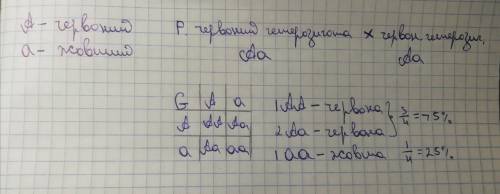 А - червоний
а - жовтий
Р. червоний гетерозигота × червон. гетерозиг.
Аа Аа
G А а
А АА Аа
а Аа аа
1 АА - червона
2 Аа - червона
3/4 = 75%
1 аа - жовта 1/4 = 25%